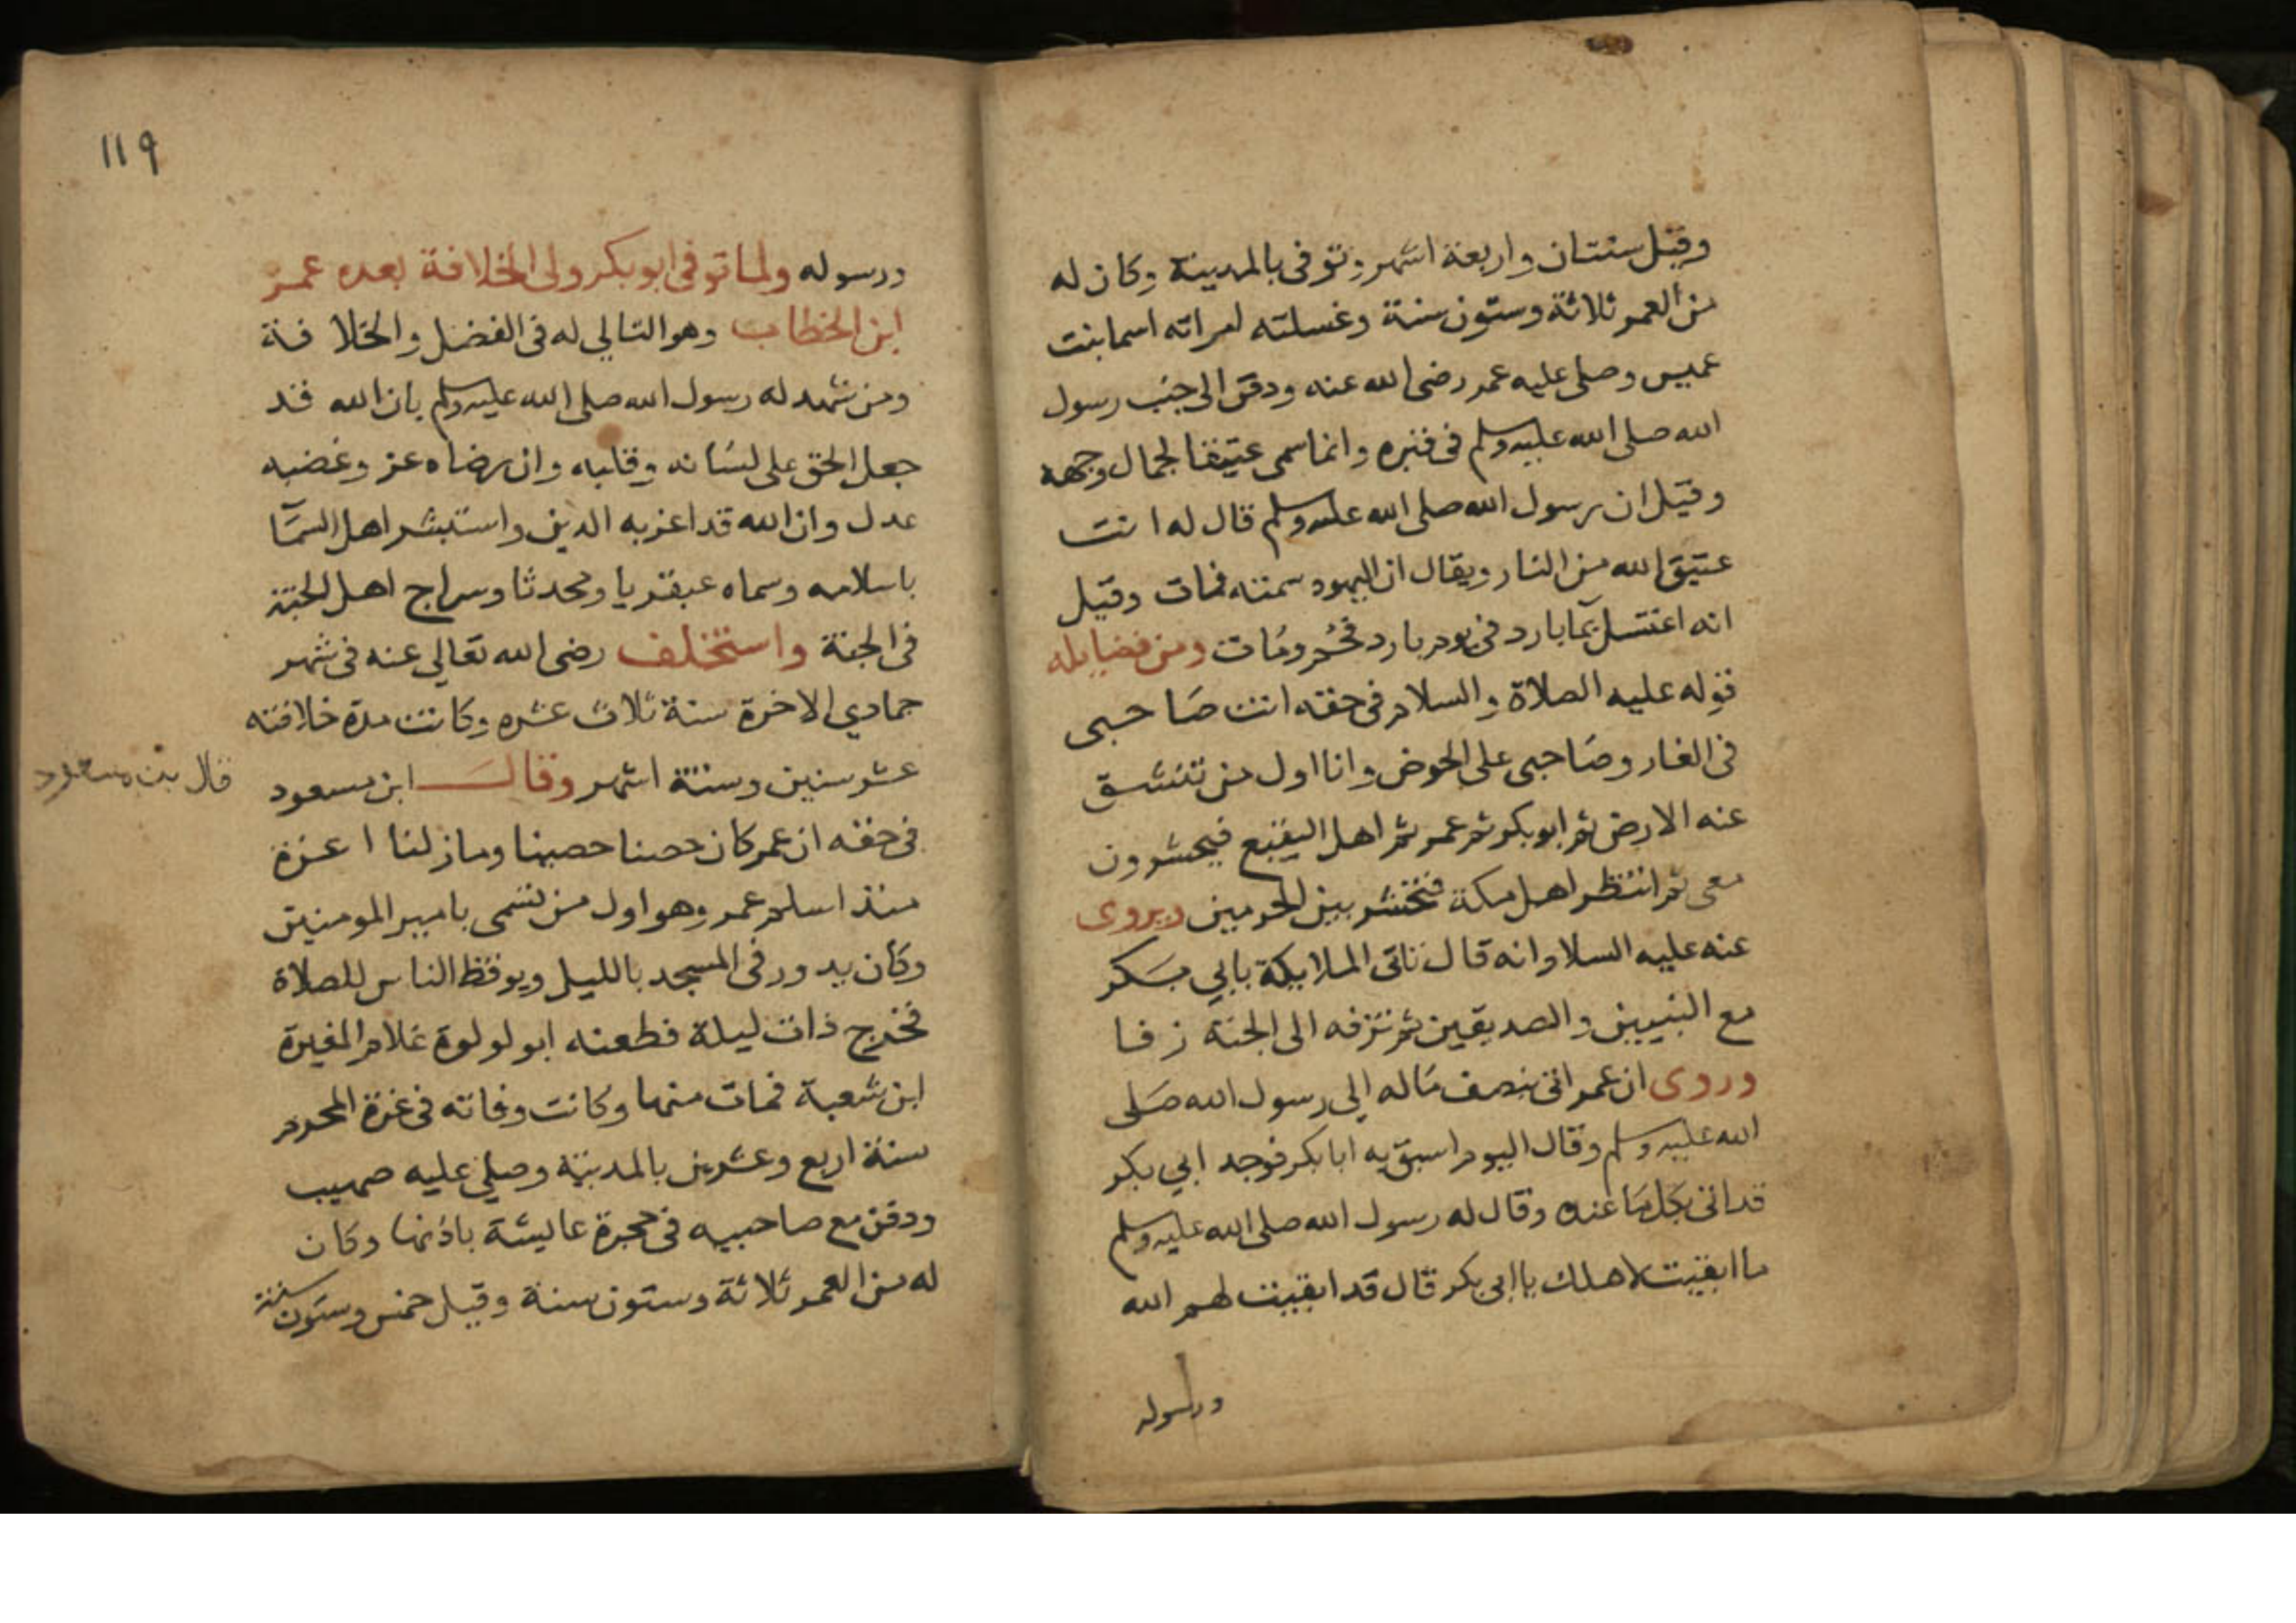 وقيل سنتان واربعة اشهر وتوفى بالمدينة وكان له
من العمر ثلاثة وستون سنة وغسلته امراته اسما بنت
عميس وصلى عليه عمر رضى الله عنه ودفن الى جنب رسول
الله صلى الله عليه وسلم فى قبره وانما سمى عتيقا لجمال وجهه
وقيل ان رسول الله صلى الله عليه وسلم قال له انت
عتيق الله من النار ويقال ان اليهود سمته فمات وقيل
انه اغتسل بما بارد فى يوم بارد فحُم ومُات ومن فضايله
قوله عليه الصلاة والسلام فى حقه انت صَاحبى
فى الغار وصَاحبى على الحوض وانا اول من تنشق
عنه الارض ثم ابو بكر ثم عمر ثم اهل البقيع فيحشرون
معى ثم انتظر اهل مكة فتحشر بين الحرمين ويروى
عنه عليه السلام انه قال تاتى الملايكة بابي بَكر
مع النبيين والصديقين ثم تزفه الى الجنة زفا
وروى ان عمر اتى بنصف مَاله الى رسول الله صَلى
الله عليه وسلم وقال اليوم اسبق به ابا بكر فوجد ابي بكر
قد اتى بكل مَا عنده وقال له رسول الله صلى الله عليه وسلم
ما ابقيت لاهلك يا ابى بكر قال قد ابقيت لهم الله
ورسوله
119
ورسوله ولما توفى ابو بكر ولى الخلافة بعده عمر
ابن الخطاب وهو التالي له فى الفضل والخلافة
ومن شهد له رسول الله صلى الله عليه وسلم بان الله قد
جعل الحق على لسَانه وقلبه وان رضاه عز وغضبه
عدل وان الله قد اعز به الدين واستبشر اهل السمَآ
باسلامه وسماه عبقريا ومحدثا وسراج اهل الجنة
فى الجنة واستخلف رضى الله تعالي عنه فى شهر
جمادي الاخرة سنة ثلاث عشره وكانت مدة خلافته
عشر سنين وستة اشهر وقالَ ابن مسعود
قال بن مسعود
فى حقه ان عمر كان حصنا حصينا وما زلنا اعزة
منذ اسلم عمر وهو اول من تسَمى بامير المومنين
وكَان يدور فى المسجد بالليل ويوقظ الناس للصلاة
فخرج ذات ليلة فطعنه ابو لولوة غلام المغيرة
ابن شعبة فمات منها وكانت وفاته فى غرة المحرم
سنة اربع وعشرين بالمدينة وصلى عليه صهيب
ودفن مع صاحبيه فى حجرة عايشة باذنها وكَان
له من العمر ثلاثة وستون سنة وقيل خمس وستون سنة